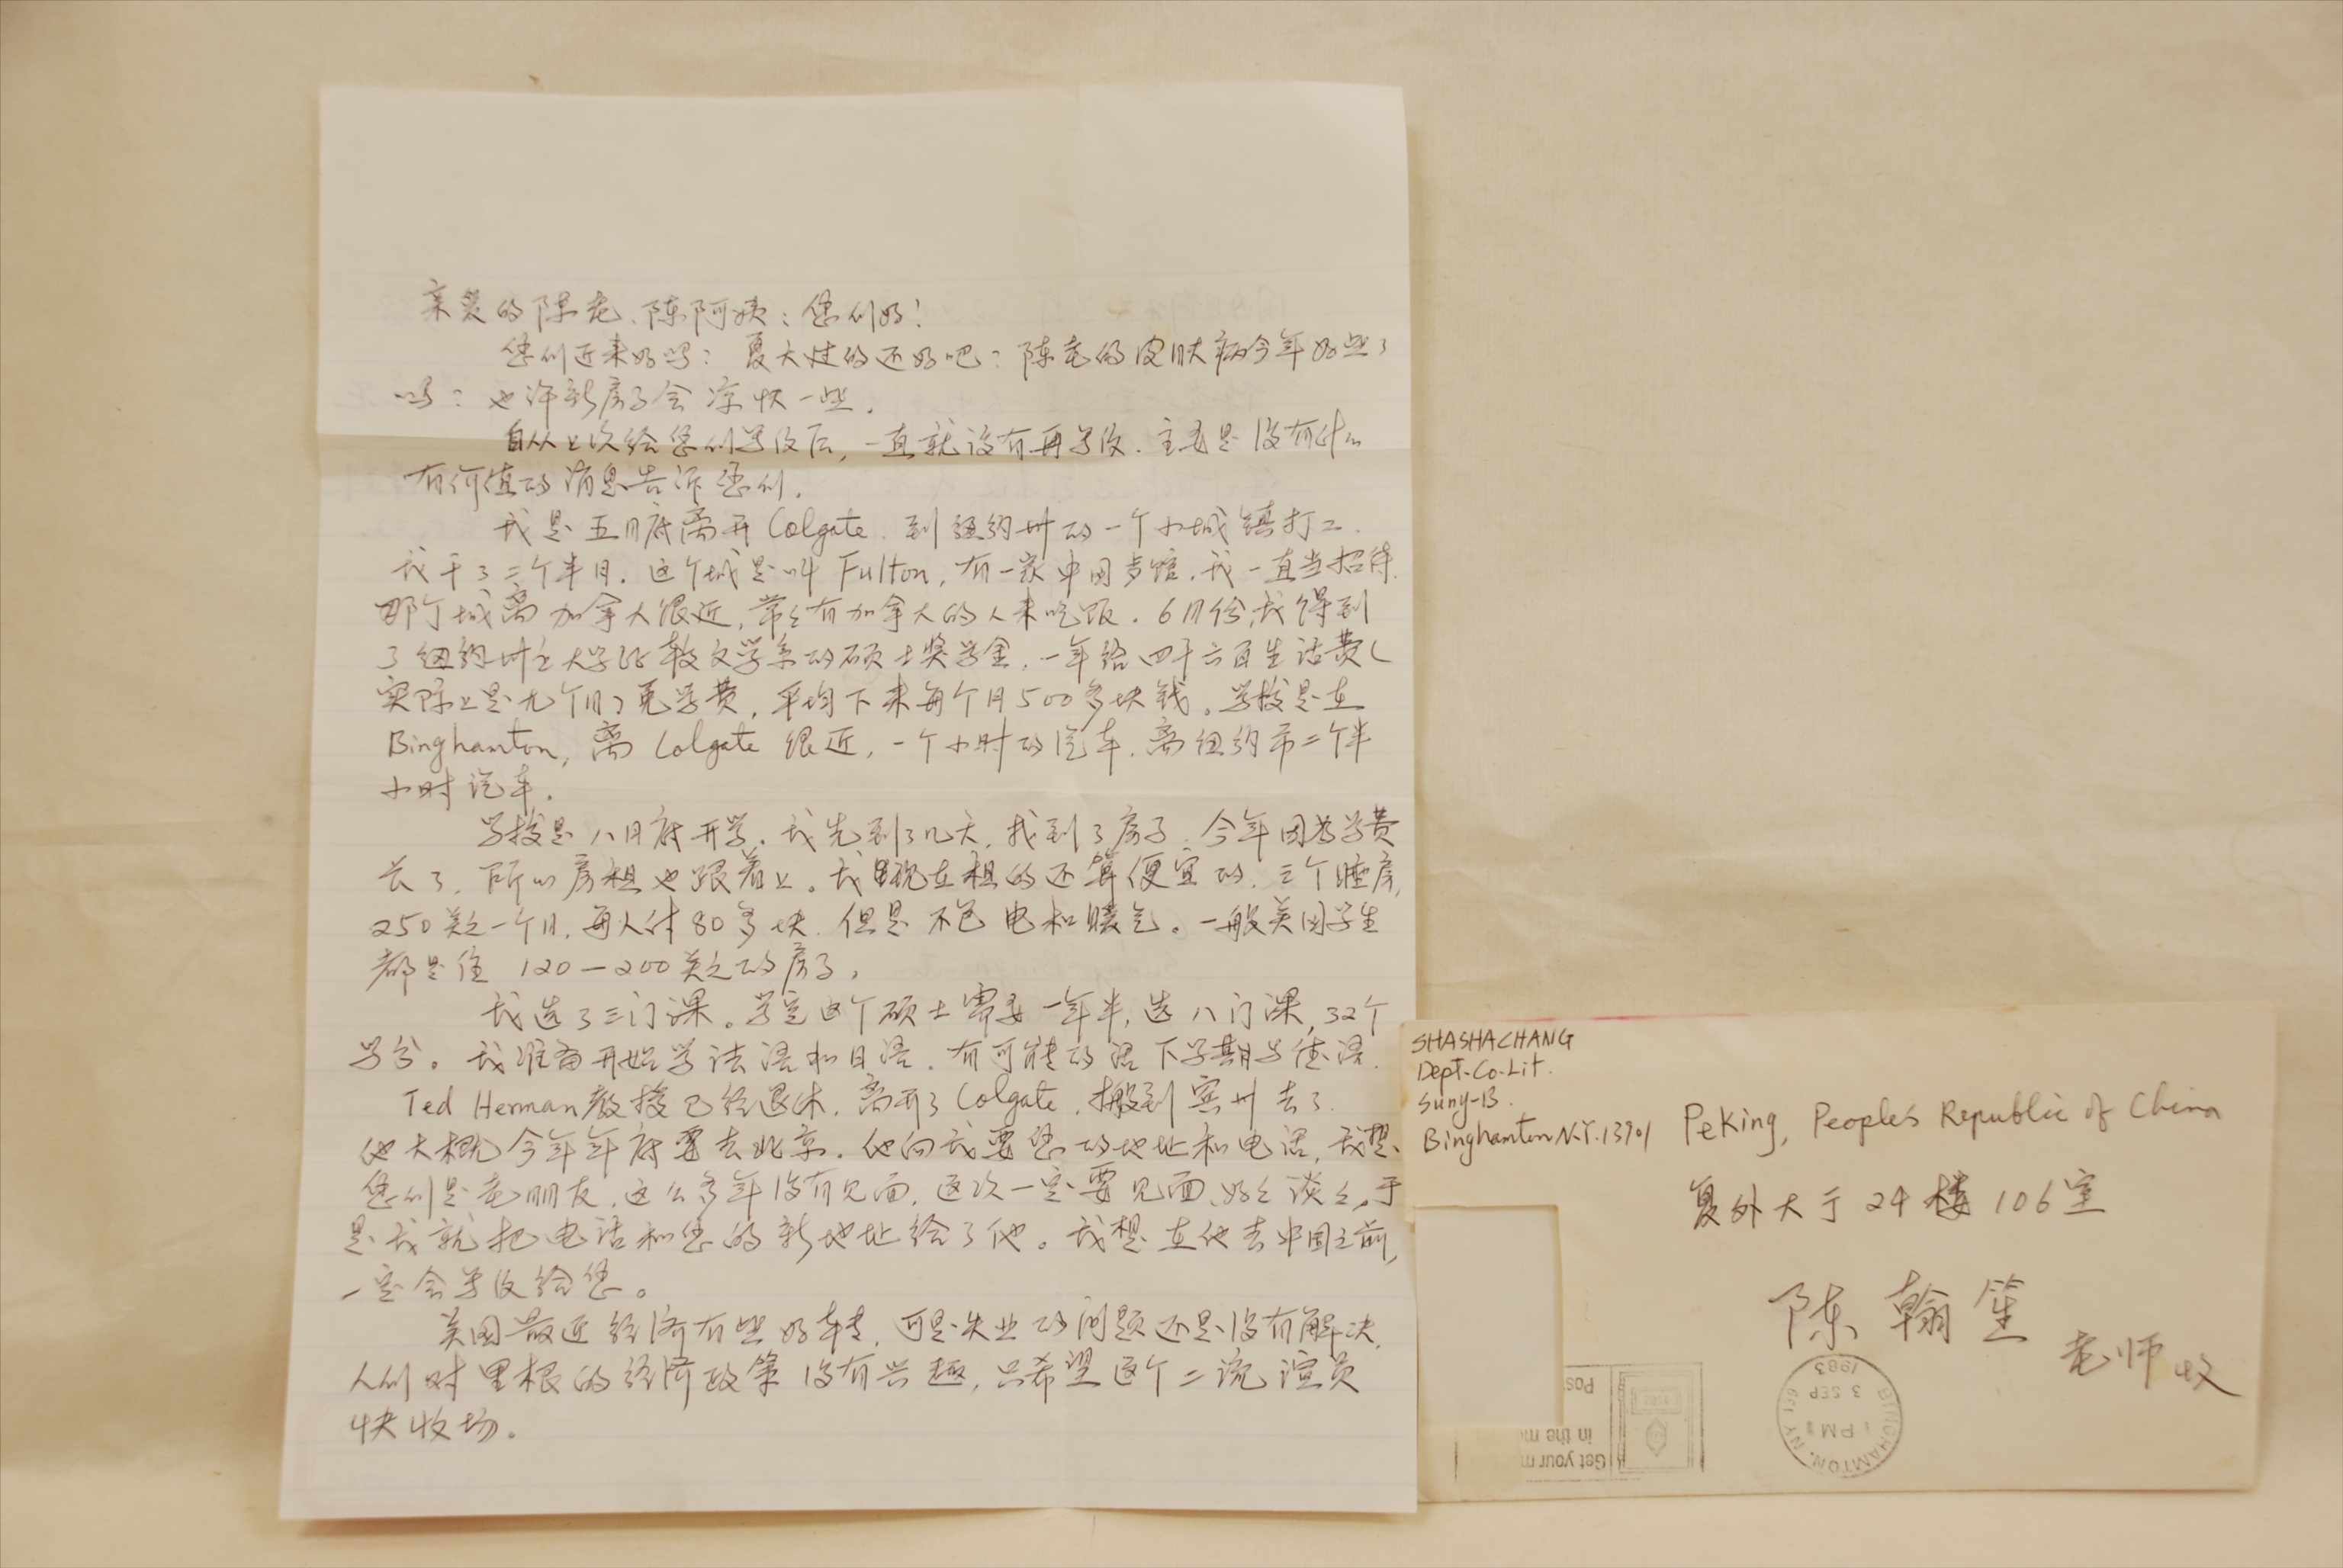 亲爱的陈老、陈阿姨：您们好！
您们近来好吗？夏天过的还好吧？陈老的皮肤病今年好些了
吗？也许新房子会凉快一些。
自从上次给您们写信后，一直就没有再写信．主要是没有什么
有价值的消息告诉您们．
我是五月底离开Colgate．到纽约州的一个小城镇打工．
我干了二个半月．这个城是叫Fulton，有一家中国步馆．我一直当招待．
那个城离加拿大很近，常々有加拿大的人来吃饭．6月份，我得到
了纽约州立大学比较文学系的硕士奖学金，一年给四千六百生活费（
实际上是九个月）免学费，平均下来每个月500多块钱。学校是在
Binghamton，离Colgate很近，一个小时的汽车．离纽约市二个半
小时汽车．
学校是八月底开学．我先到了几天，找到了房子．今年因为学费
长了．所以房租也跟着上。我现在租的还算便宜的．三个睡房，
250美元一个月，每人付80多块．但是不包电和暖气。一般美国学生
都是住120—200美元的房子．
我选了三门课。学完这个硕士需要一年半，选八门课，32个
学分。我准备开始学法语和日语．有可能的话下学期学德语．
Ted Herman教授已经退休．离开了Colgate，搬到宾州去了．
他大概今年年底要去北京．他向我要您的地址和电话，我想，
您们是老朋友，这么多年没有见面，这次一定要见面、好々谈々，于
是我就把电话和您的新地址给了他。我想在他去中国之前，
一定会写信给您。
美国最近经济有些好转，可是失业的问题还是没有解决，
人们对里根的经济政策没有兴趣，只希望这个二流演员
快收场。
SHASHACHANG
Dept-Co-Lit.
Suny-B.
Binghamton N.Y. 13901
Peking, People's Republic of China
复外大于24楼106室
陈翰笙
老师收
BINGHAMTON, NY 139
PM
3 SEP
1983
Get your m
in the m
Pos